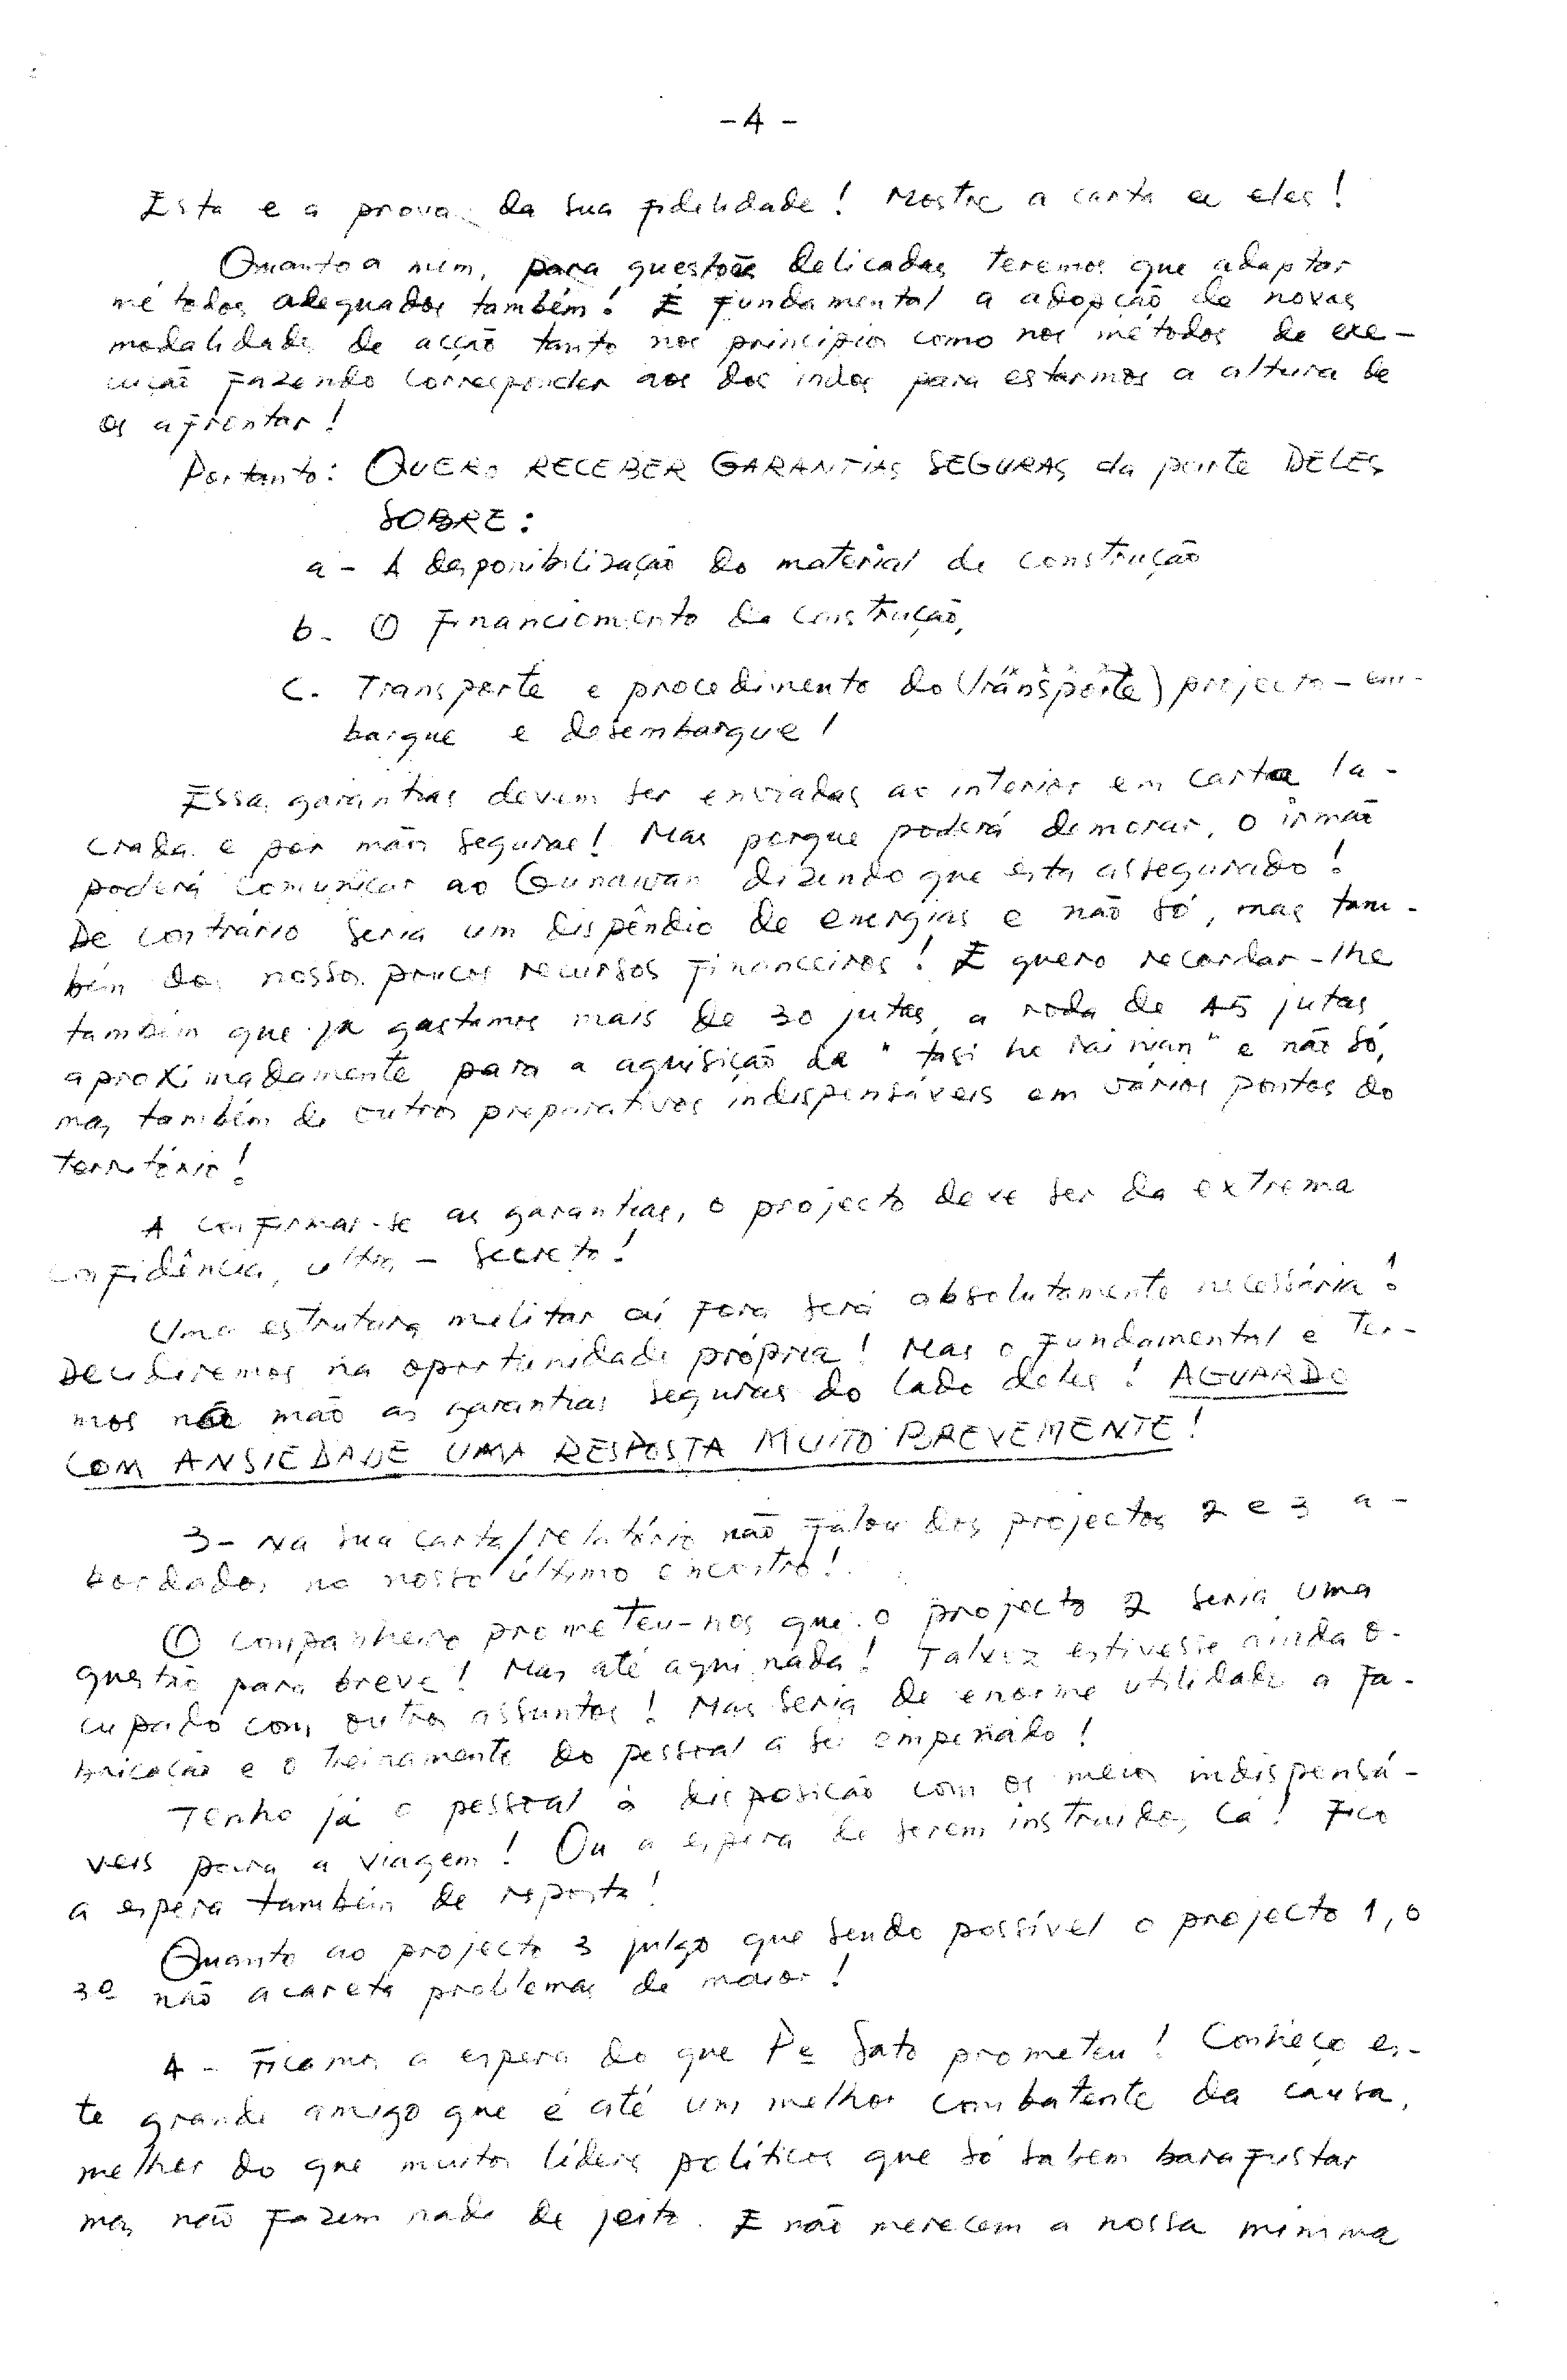 - 4 -
Esta e a prova da sua fidelidade! Mostre a carta a eles!
Quanto a mim, para questões delicadas teremos que adaptar
métodos adequados também! É fundamental a adopção de novas
modalidades de acção tanto nos principios como nos métodos de exe-
cução fazendo corresponder aos dos indos para estarmos a altura de
os afrontar!
Portanto: QUERO RECEBER GARANTIAS SEGURAS da parte DELES
SOBRE:
a - A desponibilização do material de construção
b - O financiamento da construção,
c. Transporte e procedimento do (transporte) projecto - em-
barque e desembarque!
Essas garantias devem ser enviadas ao interior em carta la-
crada e por mãos seguras! Mas porque poderá demorar, o irmão
poderá comunicar ao Gunawan dizendo que esta assegurado!
De contrário seria um dispêndio de energias e não só, mas tam-
bém dos nossos poucos recursos financeiros! E quero recordar-lhe
também que já gastamos mais de 30 jutas, a roda de 45 jutas
aproximadamente para a aquisição de " tasi he " e não só,
mas também de outros preparativos indispensáveis em vários pontos do
território!
A confirmar-se as garantias, o projecto deve ser da extrema
confidência, ultra - secreto!
Uma estrutura militar aí fora será absolutamente necessária!
Decidiremos na oportunidade própria! Mas o fundamental e ter-
mos na mão as garantias seguras do lado deles! AGUARDO
COM ANSIEDADE UMA RESPOSTA MUITO BREVEMENTE!
3 - Na sua carta/relatório não falou dos projectos 2 e 3 a-
bordados no nosso último encontro!
O companheiro prometeu-nos que o projecto 2 seria uma
questão para breve! Mas até aqui nada! Talvez estivesse ainda o-
cupado com outros assuntos! Mas seria de enorme utilidade a fa-
bricação e o treinamento do pessoal a ser empenado!
Tenho já o pessoal à disposição com os meios indispensá-
veis para a viagem! Ou a espera de serem instruidos cá! Fico
a espera também de resposta!
Quanto ao projecto 3 julgo que sendo possível o projecto 1, o
3º não acareta problemas de maior!
4 - Ficamos a espera do que Pe Sato prometeu! Conheço es-
te grande amigo que é até um melhor combatente da causa,
melhor do que muitos líderes políticos que só sabem barafustar
mas não fazem nada de jeito. E não merecem a nossa minima